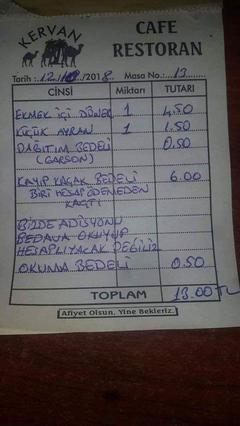 KERVAN
CAFE
RESTORAN
Tarih : 12/ /2018. Masa No.: 13
CİNSİ Miktarı TUTARI
EKMEK İÇİ DÖNER 1 4.50
KÜÇÜK AYRAN 1 1.50
DAĞITIM BEDELİ 0.50
(GARSON)
KAYIP KAÇAK BEDELİ 6.00
BİRİ HESAP ÖDEMEDEN
KAÇTI
BİZDE ADİSYONU
BEDAVA OKUYUP
HESAPLIYACAK DEĞİLİZ
OKUMA BEDELİ 0.50
TOPLAM 13.00 TL
Afiyet Olsun, Yine Bekleriz.